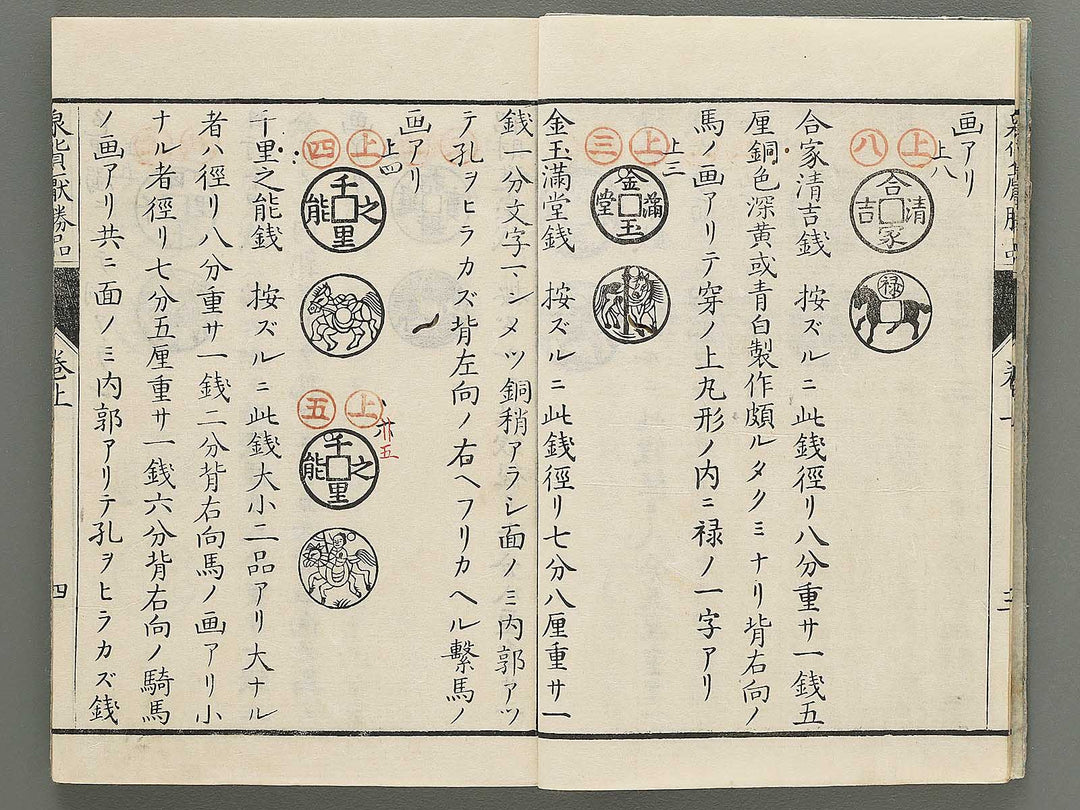 画アリ
上八
上
八
合清家吉
禄
合家清吉銭 按ズルニ此銭徑リ八分重サ一銭五
厘銅色深黄或青白製作頗ルタクミナリ背右向ノ
馬ノ画アリテ穿ノ上丸形ノ内ニ禄ノ一字アリ
上三
上
三
金玉滿堂
金玉滿堂銭 按ズルニ此銭徑リ七分八厘重サ一
銭一分文字一、シメツ銅稍アラシ面ノミ内郭アツ
テ孔ヲヒラカズ背左向ノ右ヘフリカヘル繋馬ノ
画アリ
上四
上
四
千里之能
廾五
上
五
千里之能
千里之能銭 按ズルニ此銭大小二品アリ大ナル
者ハ徑リ八分重サ一銭二分背右向馬ノ画アリ小
ナル者徑リ七分五厘重サ一銭六分背右向ノ騎馬
ノ画アリ共ニ面ノミ内郭アリテ孔ヲヒラカズ銭
泉貨厭勝品 巻上 四